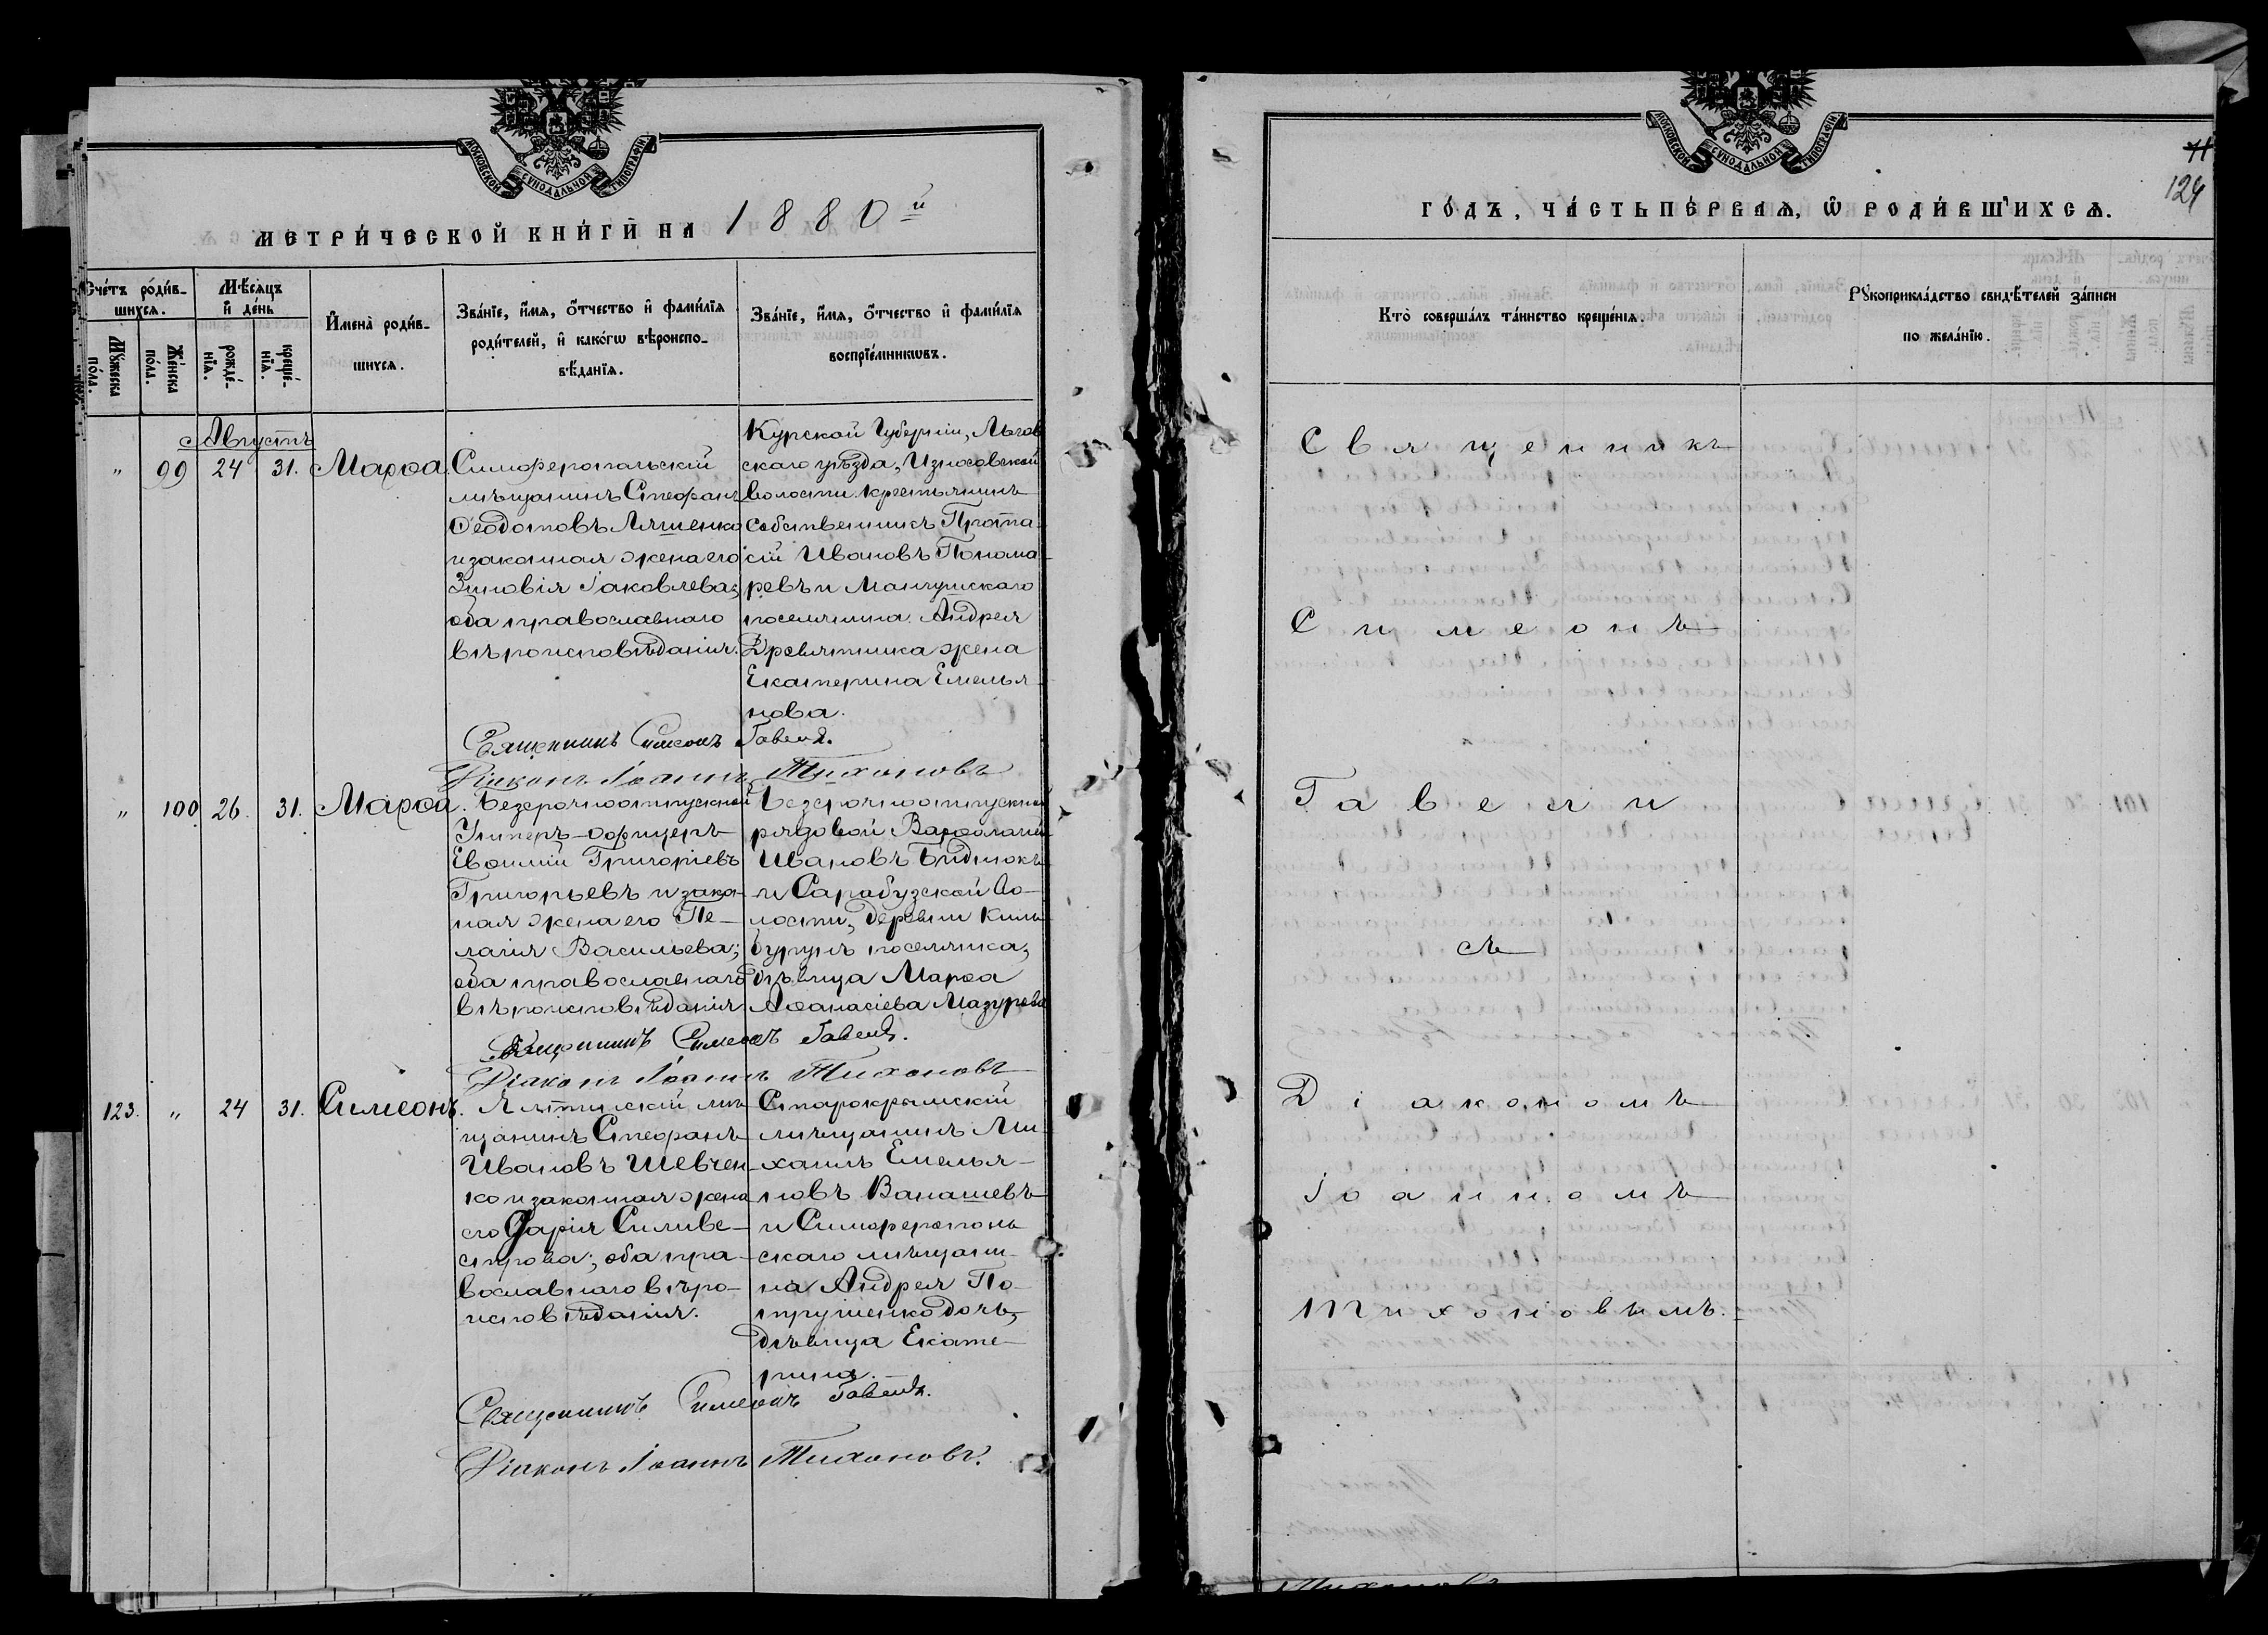 МОСКОВСКОЙ СУНОДАЛЬНОЙ ТИПОГРАФІИ
МЕТРИ́ЧЕСКОЙ КНИ́ГИ НА 1880й
Сче́тъ роди́в-
шихсѧ.
Мѣ́сѧцъ
и де́нь
Мꙋ́жеска
по́ла.
Же́нска
по́ла.
рожде́-
нїѧ.
креще́-
нїѧ.
Имена̀ роди́в-
шихсѧ.
Зва́нїе, и́мѧ, ѻ́тчество и фами́лїѧ
роди́телей, и како́гѡ вѣроиспо-
вѣ́данїѧ.
Зва́нїе, и́мѧ, ѻ́тчество и фами́лїѧ
воспрїе́мникѡвъ.
Августъ
„ 99 24 31. Марѳа.
Симферопольскій
мѣщанинъ Стефанъ
Ѳеодотовъ Ляшенко
и законная жена его
Зиновія Іаковлева;
оба православнаго
вѣроисповѣданія.
Курской Губерніи, Льгов
скаго уѣзда, Износовской
волости крестьянинъ
собственникъ Прота-
сій Ивановъ Понома-
ревъ и Мангушскаго
поселянина Андрея
Древятника жена
Екатерина Емелья-
нова.
Священникъ Симеонъ Гавеля.
Діаконъ Іоаннъ Тихоновъ
„ 100 26. 31. Марѳа.
Безсрочноотпускной
Унтеръ-офицеръ
Евѳимій Григоріевъ
Григорьевъ и зако-
ная жена его Пе-
лагія Васильева;
оба православнаго
вѣроисповѣданія.
Безсрочноотпускной
рядовой Варѳоломей
Ивановъ Бидню́къ
и Сарабузской во-
лости, деревни Киль-
бурунъ поселянка,
дѣвица Марѳа
Аѳанасіева Мазурова
Священникъ Симеонъ Гавеля.
Діаконъ Іоаннъ Тихоновъ
123. „ 24 31. Симеонъ.
Ялтинскій мѣ-
щанинъ Стефанъ
Ивановъ Шевчен-
ко и законная жена
его Дарія Силиве-
строва; оба пра-
вославнаго вѣро-
исповѣданія.
Старокрымскій
мѣщанинъ Ми-
хаилъ Емелья-
новъ Ванашевъ
и Симферополь-
скаго мѣщани-
на Андрея По-
трушенко дочь,
дѣвица Екате-
рина.
Священникъ Симеонъ Гавеля.
Діаконъ Іоаннъ Тихоновъ.
МОСКОВСКОЙ СУНОДАЛЬНОЙ ТИПОГРАФІИ
124
ГО́ДЪ, ЧА́СТЬ ПЕ́РВАѦ, Ѡ РОДИ́ВШИХСѦ.
Кто̀ соверша́лъ та́инство креще́нїѧ.
Рꙋкоприкла́дство свидѣ́телей за́писи
по жела́нїю.
Священникъ
Симеонъ
Гавели
съ
Діакономъ
Іоанномъ
Тихоновымъ.